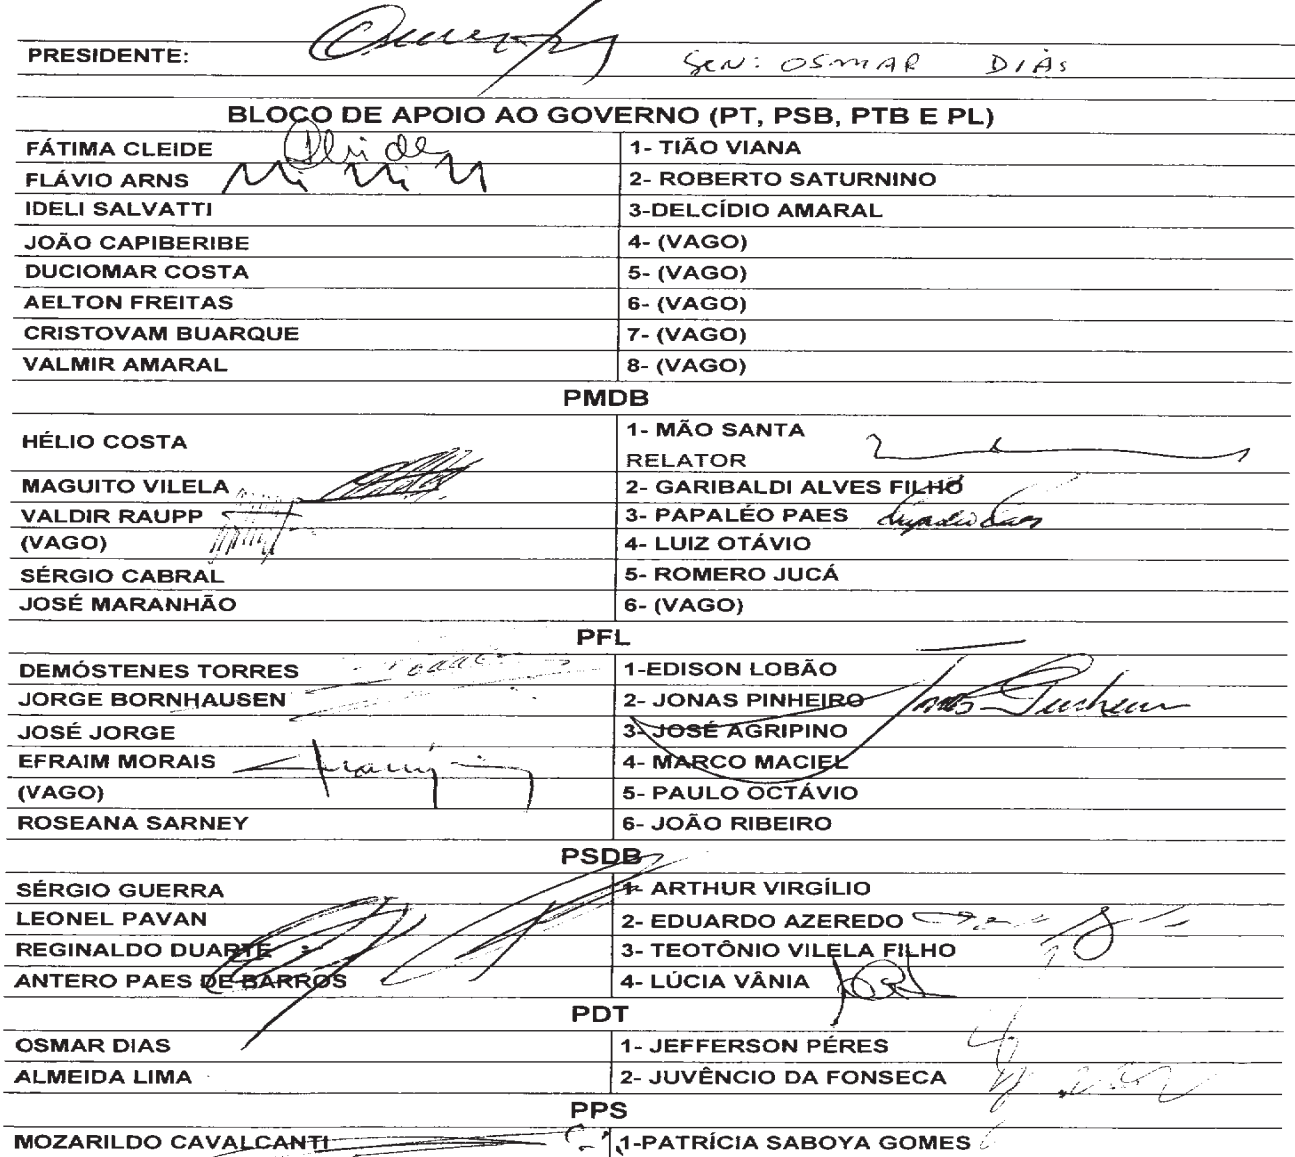 PRESIDENTE: SEN: OSMAR DIAS
BLOCO DE APOIO AO GOVERNO (PT, PSB, PTB E PL)
FÁTIMA CLEIDE 1- TIÃO VIANA
FLÁVIO ARNS 2- ROBERTO SATURNINO
IDELI SALVATTI 3-DELCÍDIO AMARAL
JOÃO CAPIBERIBE 4- (VAGO)
DUCIOMAR COSTA 5- (VAGO)
AELTON FREITAS 6- (VAGO)
CRISTOVAM BUARQUE 7- (VAGO)
VALMIR AMARAL 8- (VAGO)
PMDB
HÉLIO COSTA 1- MÃO SANTA
RELATOR
MAGUITO VILELA 2- GARIBALDI ALVES FILHO
VALDIR RAUPP 3- PAPALÉO PAES
(VAGO) 4- LUIZ OTÁVIO
SÉRGIO CABRAL 5- ROMERO JUCÁ
JOSÉ MARANHÃO 6- (VAGO)
PFL
DEMÓSTENES TORRES 1-EDISON LOBÃO
JORGE BORNHAUSEN 2- JONAS PINHEIRO Jonas Pinheiro
JOSÉ JORGE 3- JOSÉ AGRIPINO
EFRAIM MORAIS 4- MARCO MACIEL
(VAGO) 5- PAULO OCTÁVIO
ROSEANA SARNEY 6- JOÃO RIBEIRO
PSDB
SÉRGIO GUERRA 1- ARTHUR VIRGÍLIO
LEONEL PAVAN 2- EDUARDO AZEREDO
REGINALDO DUARTE 3- TEOTÔNIO VILELA FILHO
ANTERO PAES DE BARROS 4- LÚCIA VÂNIA
PDT
OSMAR DIAS 1- JEFFERSON PÉRES
ALMEIDA LIMA 2- JUVÊNCIO DA FONSECA
PPS
MOZARILDO CAVALCANTI 1-PATRÍCIA SABOYA GOMES